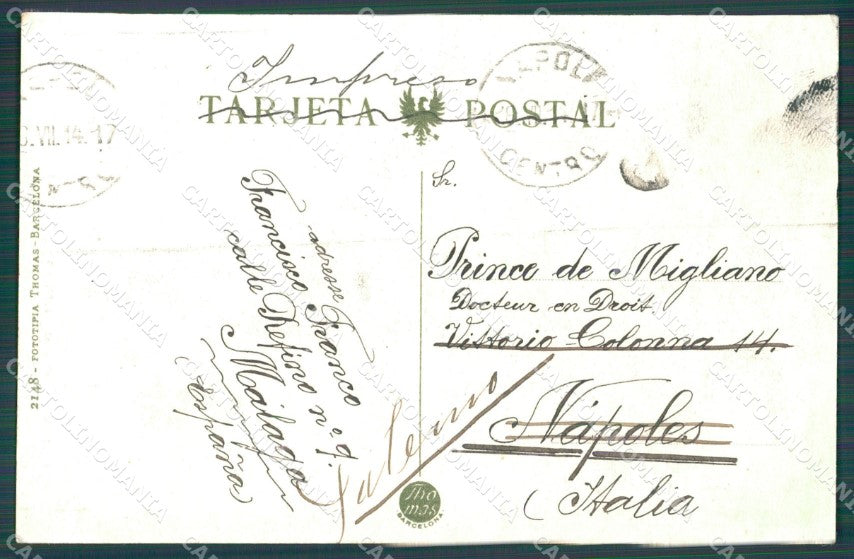 Impreso
TARJETA POSTAL
NAPOLI
CENTRO
VII. 14-17
2148 - FOTOTIPIA THOMAS - BARCELONA
adresse
Francisco Franco
calle Refino nº 9.
Málaga
(España)
Sr.
Prince de Migliano
Docteur en Droit.
Vittorio Colonna 14.
Nápoles
(Italia)
Salerno
Thomas
BARCELONA
CARTOLINOMANIA